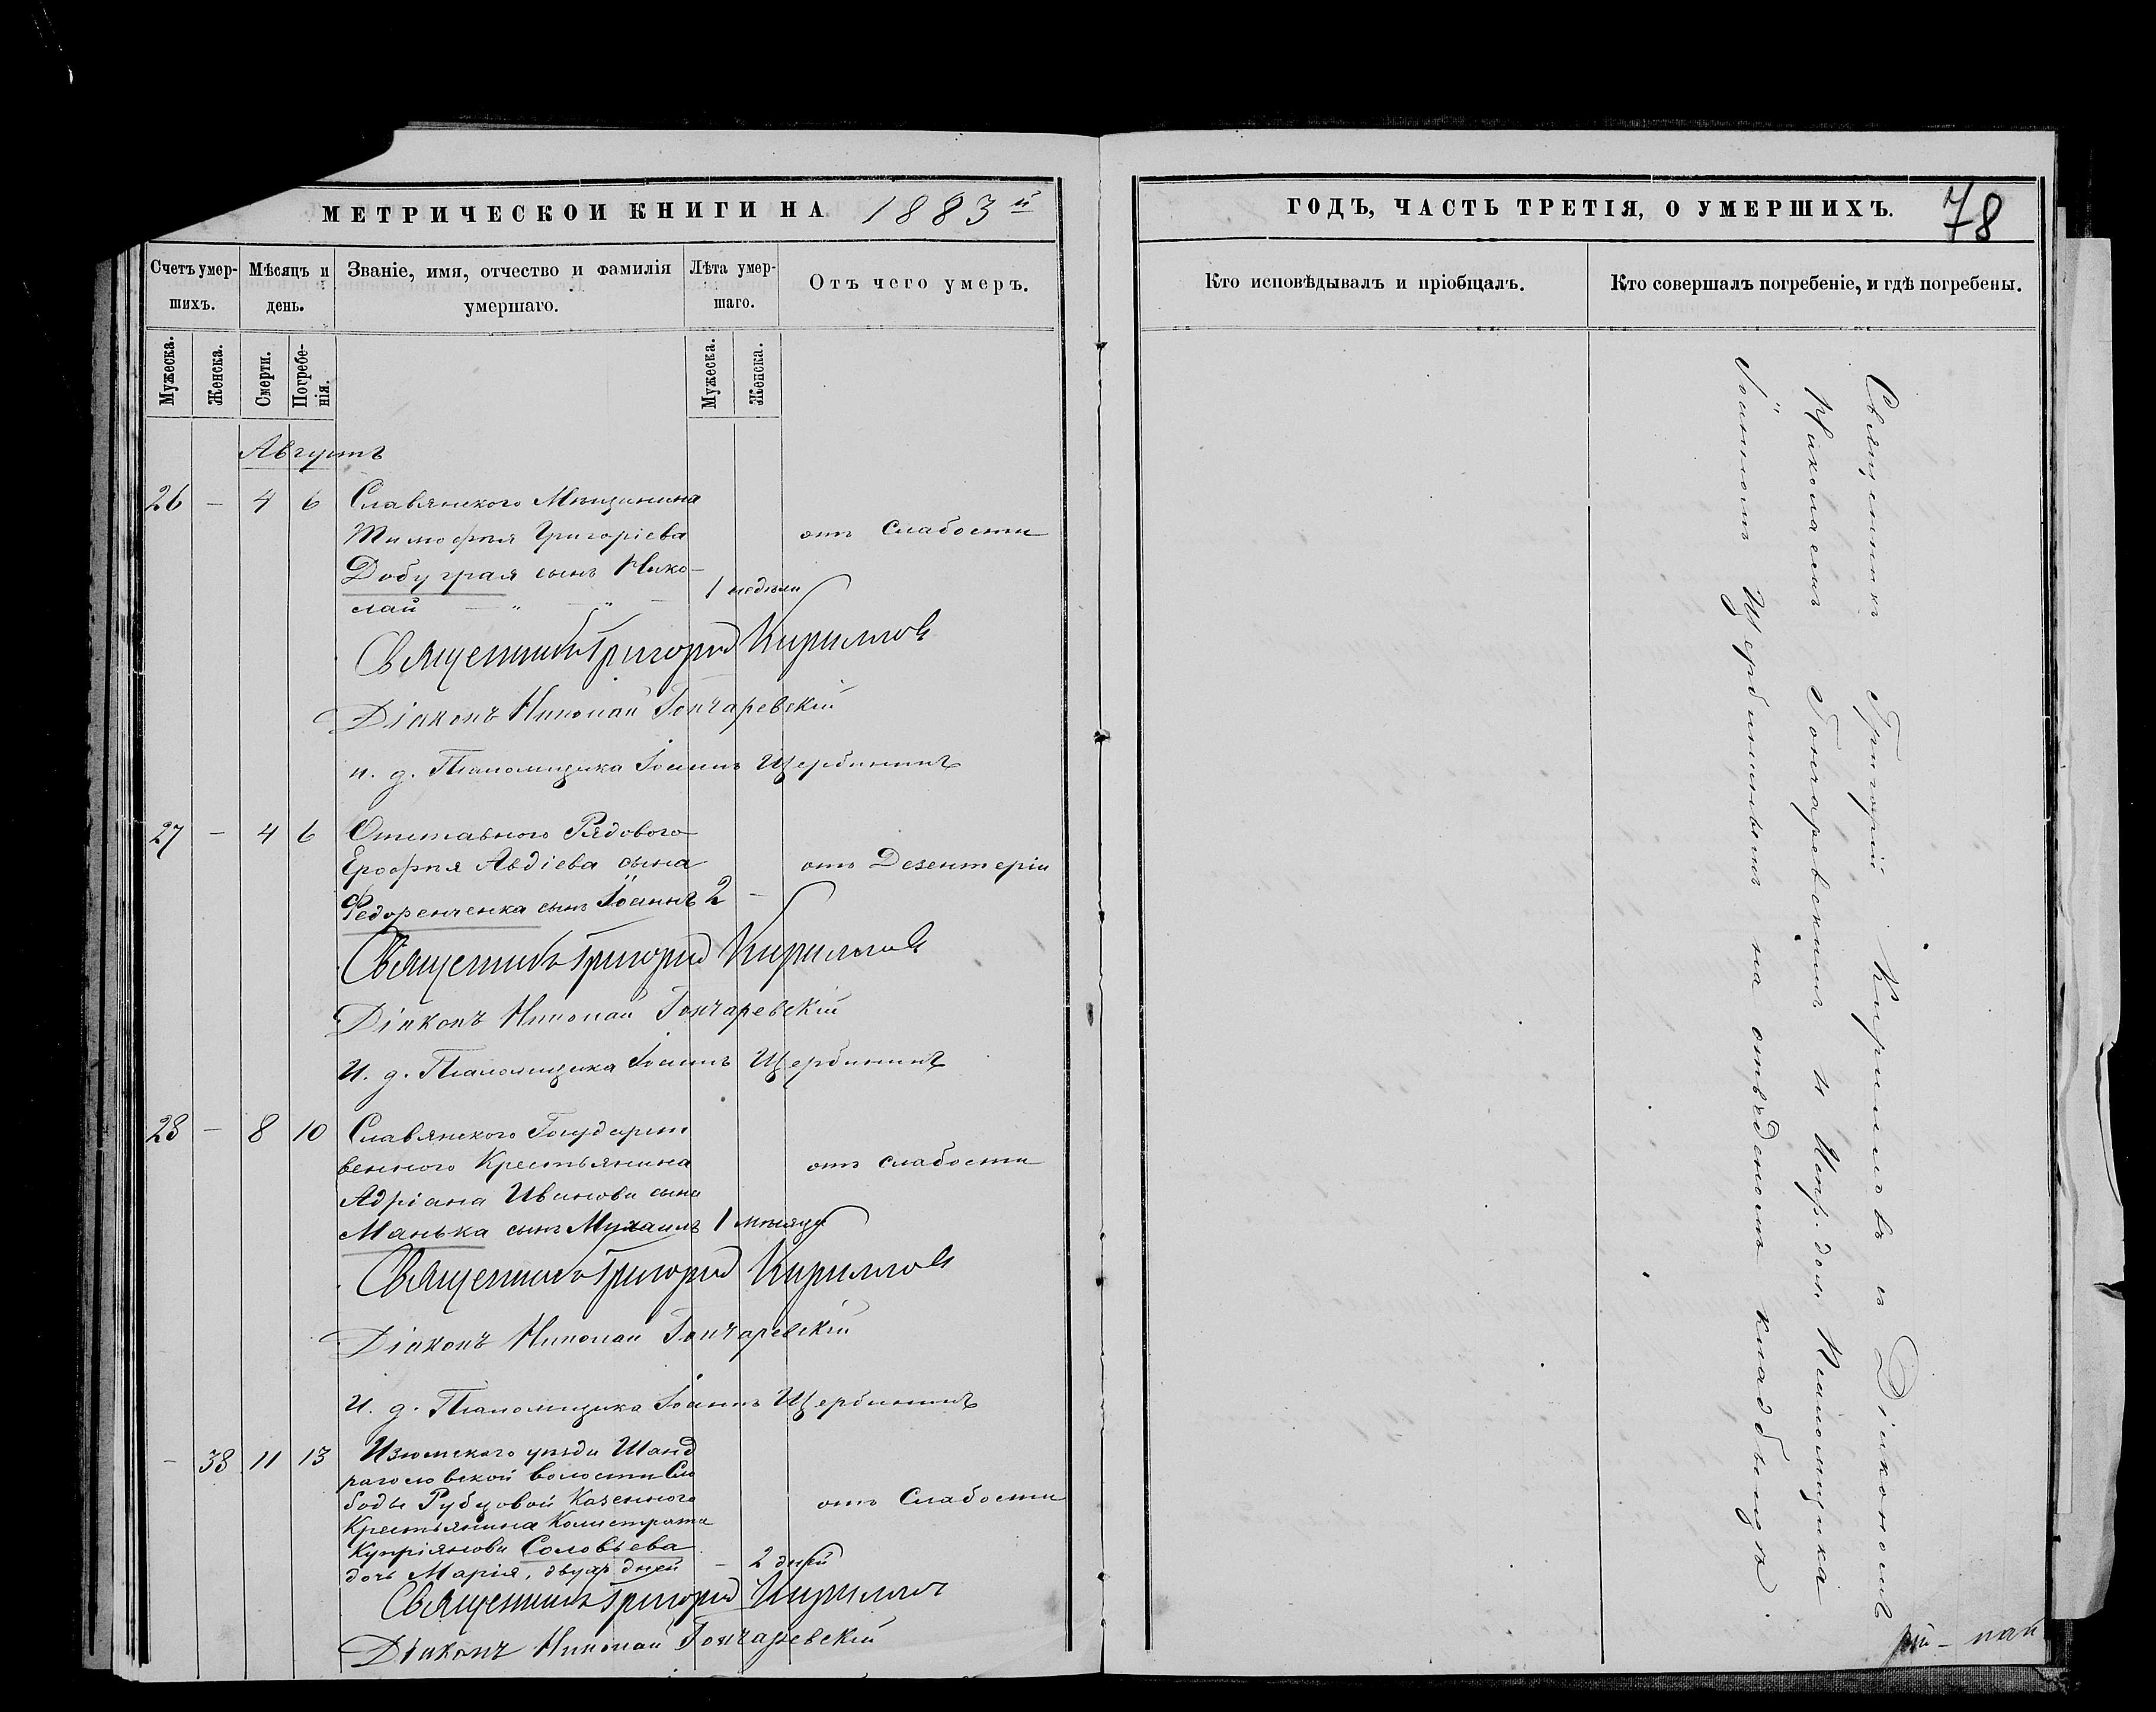 МЕТРИЧЕСКОЙ КНИГИ НА 1883й
Счетъ умершихъ.
Мѣсяцъ и день.
Званіе, имя, отчество и фамилія умершаго.
Лѣта умершаго.
Отъ чего умеръ.
Мужеска.
Женска.
Смерти.
Погребенія.
Мужеска.
Женска.
Августъ
26 — 4 6 Славянскаго Мѣщанина
Тимофѣя Григоріева отъ Слабости
Добуграя сынъ Нико-
лай — " — " — 1 недѣли
Священникъ Григорій Кирилловъ
Діаконъ Николай Гончаревскій
и. д. Псаломщика Іоаннъ Щербининъ
27 — 4 6 Отставного Рядового
Ерофѣя Авдіева сына отъ Дезентеріи
Федоренченка сынъ Іоаннъ 2 —
Священникъ Григорій Кирилловъ
Діаконъ Николай Гончаревскій
И. д. Псаломщика Іоаннъ Щербининъ
28 — 8 10 Славянского Государст
венного Крестьянина отъ слабости
Адріана Иванова сына
Манька сынъ Михаилъ 1 мѣсяца
Священникъ Григорій Кирилловъ
Діаконъ Николай Гончаревскій
И. д. Псаломщика Іоаннъ Щербининъ
— 38 11 13 Изюмскаго уѣзда Шанд
раголовской волости Сло
боды Рубцовой Казенного отъ Слабости
Крестьянина Калистрата
Купріянова Соловьева
дочь Марія, двухъ дней — 2 дней
Священникъ Григорій Кирилловъ
Діаконъ Николай Гончаревскій
ГОДЪ, ЧАСТЬ ТРЕТІЯ, О УМЕРШИХЪ. 78
Кто исповѣдывалъ и пріобщалъ.
Кто совершалъ погребеніе, и гдѣ погребены.
Священникъ Григорій Кирилловъ съ Діакономъ
Николаемъ Гончаревскимъ и Испр. дол. Псаломщика
Іоанномъ Щербининымъ на отведеномъ кладбищѣ.